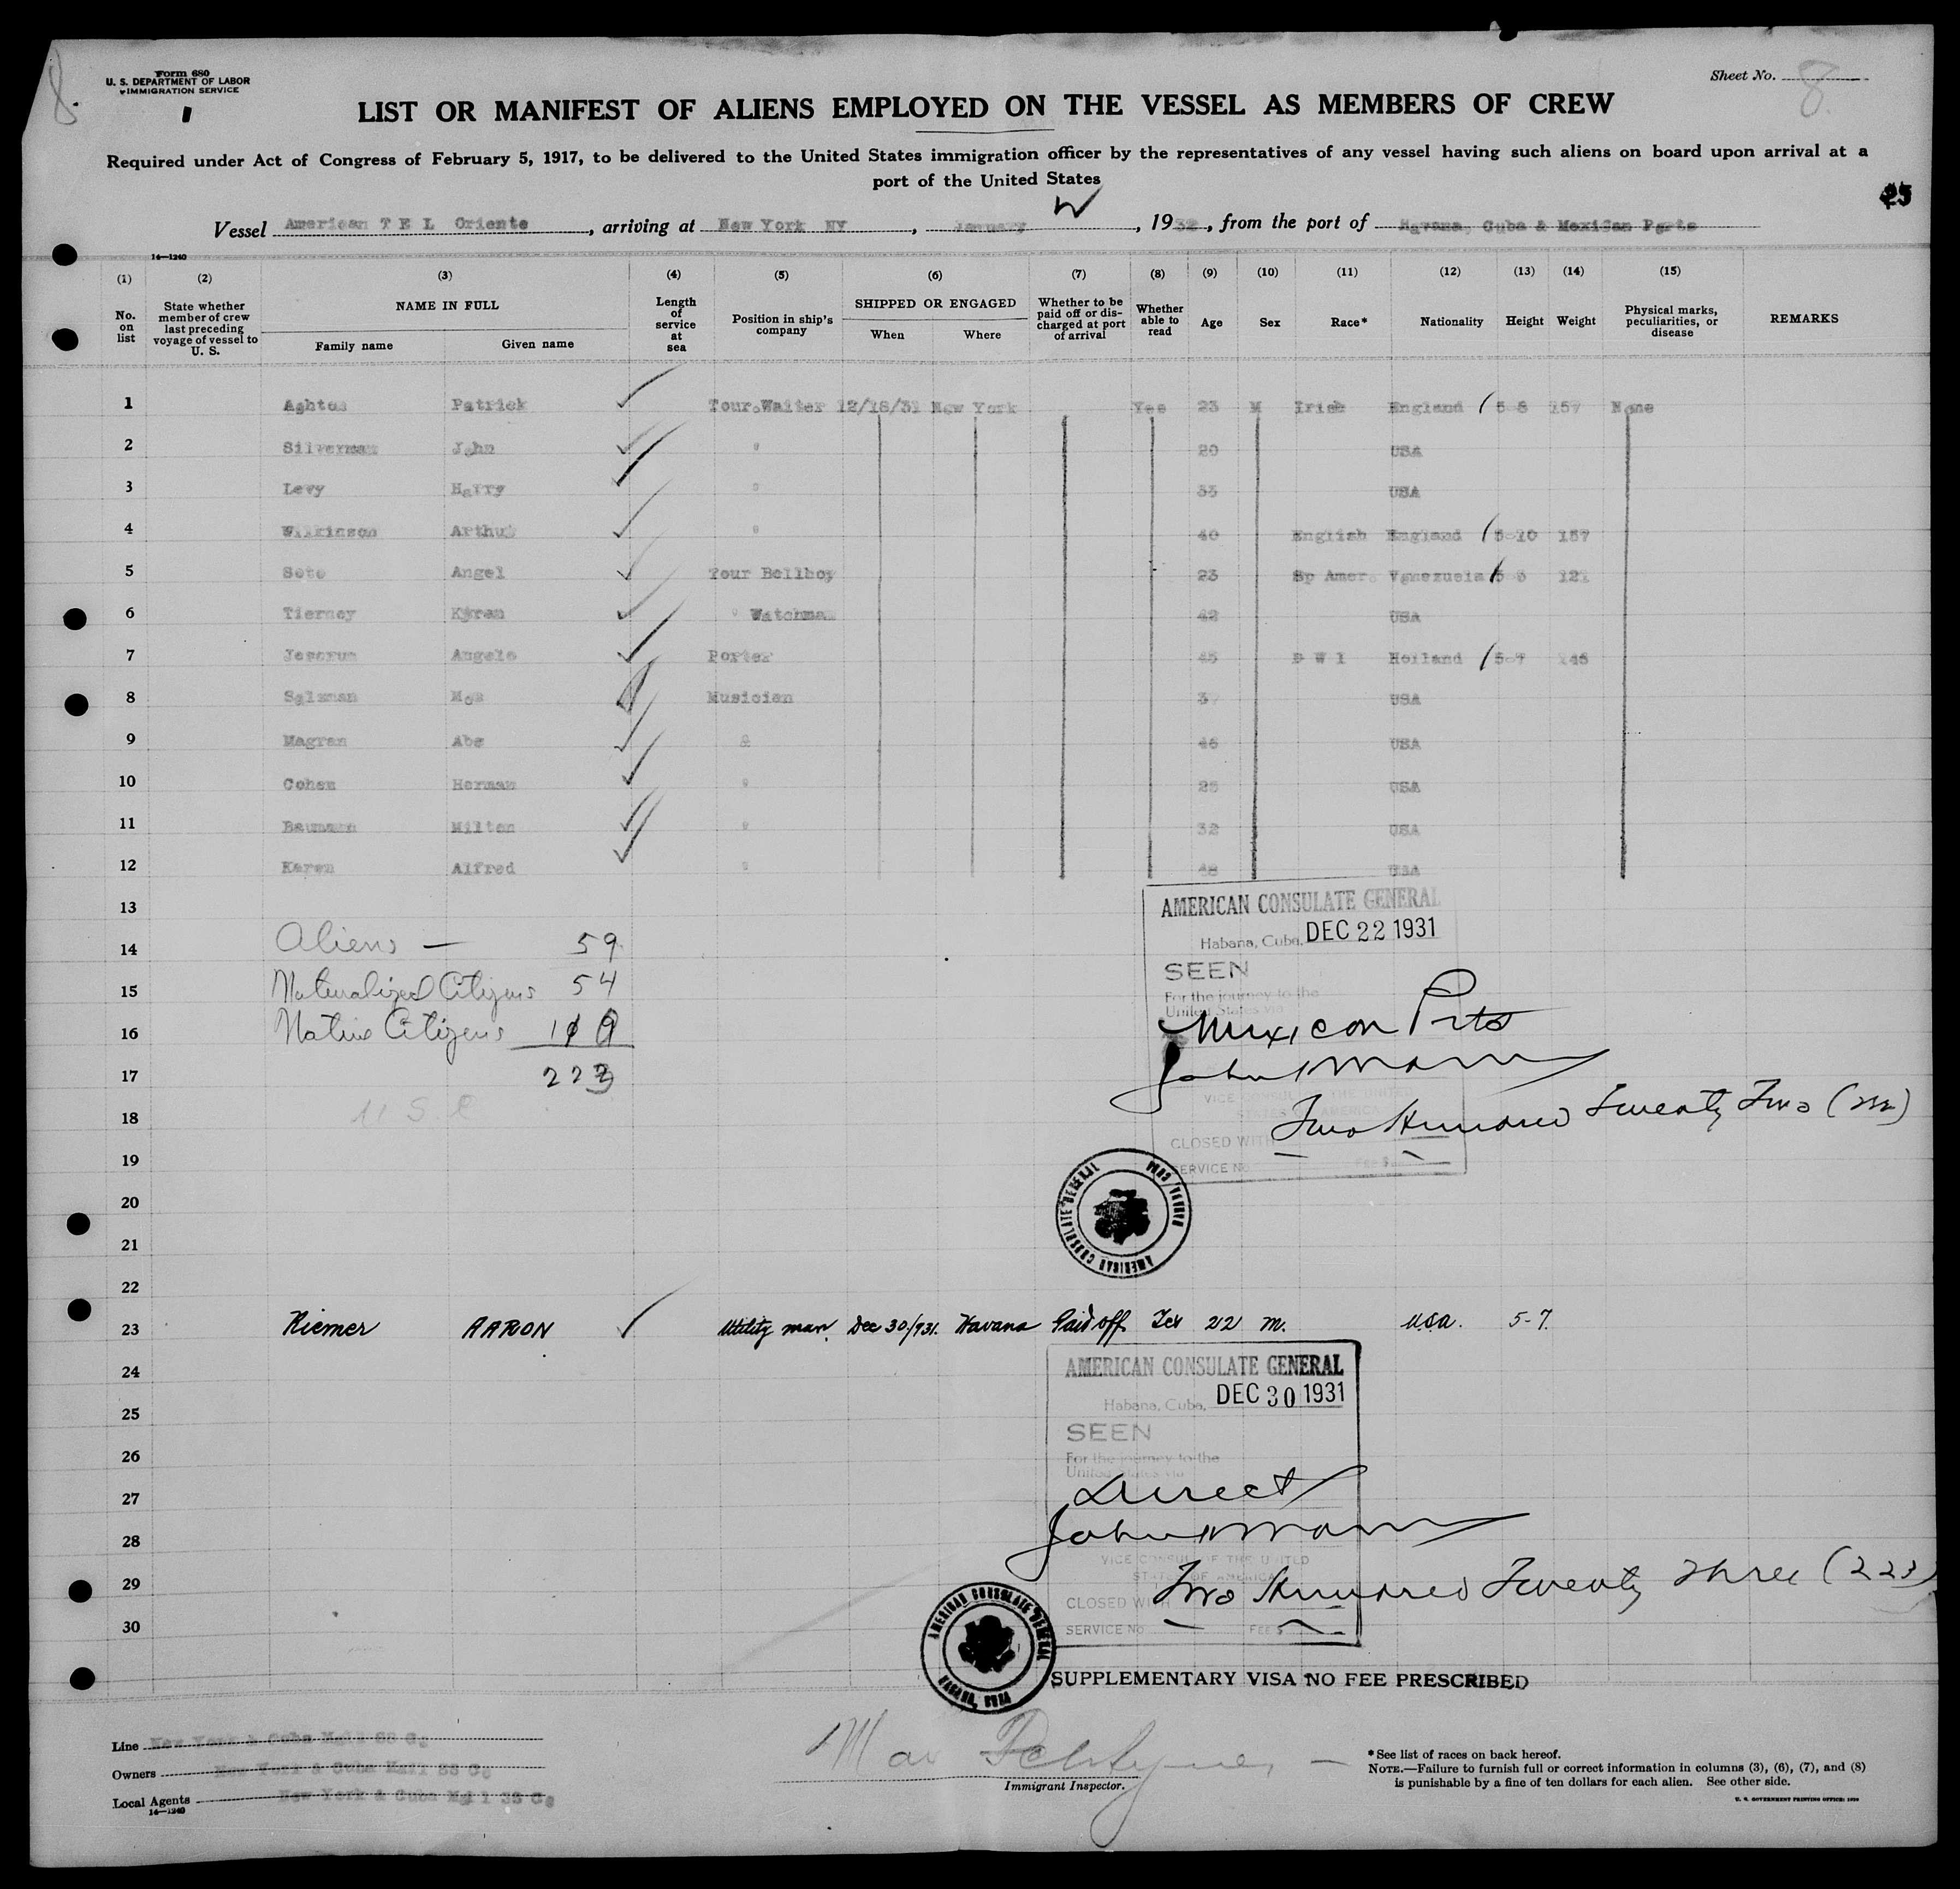 8.
Form 680
U. S. DEPARTMENT OF LABOR
IMMIGRATION SERVICE
Sheet No. 8.
LIST OR MANIFEST OF ALIENS EMPLOYED ON THE VESSEL AS MEMBERS OF CREW
Required under Act of Congress of February 5, 1917, to be delivered to the United States immigration officer by the representatives of any vessel having such aliens on board upon arrival at a
port of the United States
Vessel American T E L Oriente, arriving at New York NY, January, 1932, from the port of Havana, Cuba & Mexican Ports
14—1240
(1) (2) (3) (4) (5) (6) (7) (8) (9) (10) (11) (12) (13) (14) (15)
No. on list
State whether member of crew last preceding voyage of vessel to U. S.
NAME IN FULL
Family name Given name
Length of service at sea
Position in ship's company
SHIPPED OR ENGAGED
When Where
Whether to be paid off or discharged at port of arrival
Whether able to read
Age Sex Race* Nationality Height Weight
Physical marks, peculiarities, or disease
REMARKS
1 Patrick Tour.Waiter 12/18/31 New York Yes 23 M Irish England 5 8 157 None
2 Silverman John " 29 USA
3 Levy Harry " 33 USA
4 Wilkinson Arthur " 40 English England 5-10 157
5 Soto Angel Tour Bellboy 23 Sp Amer. Venezuela 121
6 Tierney " Watchman 42 USA
7 Angelo Porter 45 D W I Holland 5-7 146
8 Salzman Moe Musician USA
9 Magran Abe & 46 USA
10 Cohen Herman " USA
11 Baumann Milton " 32 USA
12 Karen Alfred " 48 USA
13
14 Aliens — 59
15 Naturalized Citizens 54
16 Native Citizens
17
18
19
20
21
22
AMERICAN CONSULATE GENERAL
Habana, Cuba, DEC 22 1931
SEEN
For the journey to the
United States via
Mexican Prts
VICE CONSUL OF THE UNITED
STATES OF AMERICA
Two Hundred Twenty Two (222)
CLOSED WITH
SERVICE No. FEE $
AMERICAN CONSULATE GENERAL HABANA, CUBA
23 Riemer AARON Utility man Dec 30/931. Havana Paid off Yes 22 m. USA. 5-7.
24
25
26
27
28
29
30
AMERICAN CONSULATE GENERAL
Habana, Cuba, DEC 30 1931
SEEN
For the journey to the
United States via
Direct
VICE CONSUL OF THE UNITED
STATES OF AMERICA
Two Hundred Twenty Three (223)
CLOSED WITH
SERVICE No FEE $
AMERICAN CONSULATE GENERAL HABANA, CUBA
SUPPLEMENTARY VISA NO FEE PRESCRIBED
Line New York & Cuba Mail SS Co
Owners New York & Cuba Mail SS Co
Local Agents New York & Cuba Mail SS Co
14—1240
Immigrant Inspector.
*See list of races on back hereof.
NOTE.—Failure to furnish full or correct information in columns (3), (6), (7), and (8)
is punishable by a fine of ten dollars for each alien. See other side.
U. S. GOVERNMENT PRINTING OFFICE: 1930